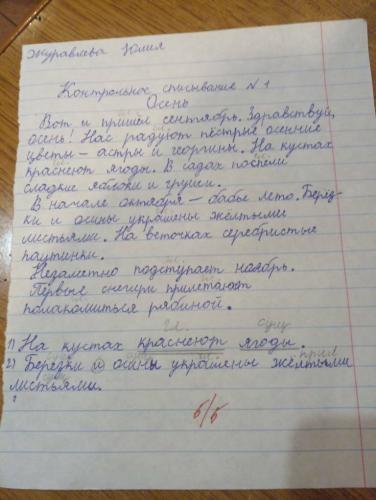 Журавлева Юлия
Контрольное списывание №1
Осень
Вот и пришёл сентябрь. Здравствуй,
осень! Нас радуют пёстрые осенние
цветы – астры и георгины. На кустах
краснеют ягоды. В садах поспели
сладкие яблоки и груши.
В начале октября – бабье лето. Берёз-
ки и осины украшены жёлтыми
листьями. На веточках серебристые
паутинки.
Незаметно подступает ноябрь.
Первые снегири прилетают
полакомиться рябиной.
гл. сущ.
1) На кустах краснеют ягоды.
прил.
2) Березки и осины украшены желтыми
листьями.
5/5